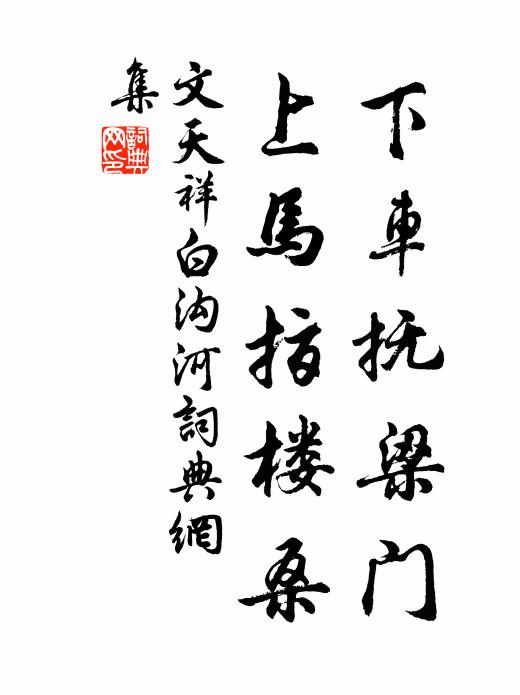 下車抚梁门
上馬指楼桑
文天祥白沟河詞典網
集
詞典
网印